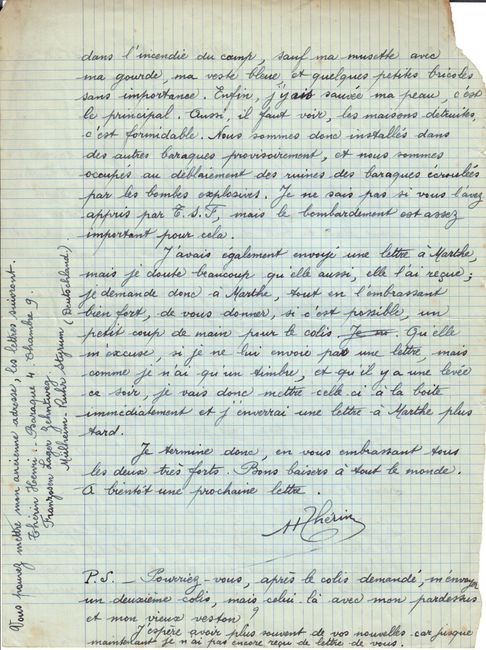 dans l'incendie du camp, sauf ma musette avec
ma gourde, ma veste bleue et quelques petites bricoles
sans importance. Enfin, j'y ais sauvée ma peau, c'est
le principal. Aussi, il faut voir, les maisons détruites,
c'est formidable. Nous sommes donc installés dans
des autres baraques provisoirement, et nous sommes
occupés au déblaiement des ruines des baraques écroulées
par les bombes explosives. Je ne sais pas si vous l'avez
appris par T.S.F, mais le bombardement est assez
important pour cela.
J'avais également envoyé une lettre à Marthe,
mais je doute beaucoup qu'elle aussi, elle l'ai reçue;
je demande donc à Marthe, tout en l'embrassant
bien fort, de vous donner, si c'est possible, un
petit coup de main pour le colis. Je ne Qu'elle
m'excuse, si je ne lui envoie pas une lettre, mais
comme je n'ai qu'un timbre, et qu'il y a une levée
ce soir, je vais donc mettre celle ci à la boite
immediatement et j'enverrai une lettre à Marthe plus
tard.
Je termine donc, en vous embrassant tous
les deux très forts. Bons baisers à tout le monde.
A bientôt une prochaine lettre.
H Thérin
P.S. _ Pourriez-vous, après le colis demandé, m'envoyer
un deuxième colis, mais celui-là avec mon pardessus
et mon vieux veston ?
J'espère avoir plus souvent de vos nouvelles car jusque
maintenant je n'ai pas encore reçu de lettre de vous.
Vous pouvez mettre mon ancienne adresse, les lettres suivront.
Thérin Henri _ Baraque 4 Chambre 9.
Franzosen Lager Zehntweg
Mülheim-Ruhr Styrum (Deutschland)